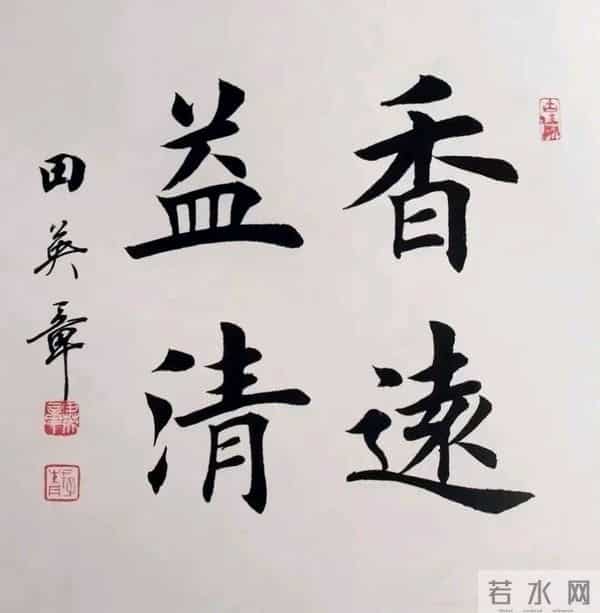 香遠
益清
田英章
若水网